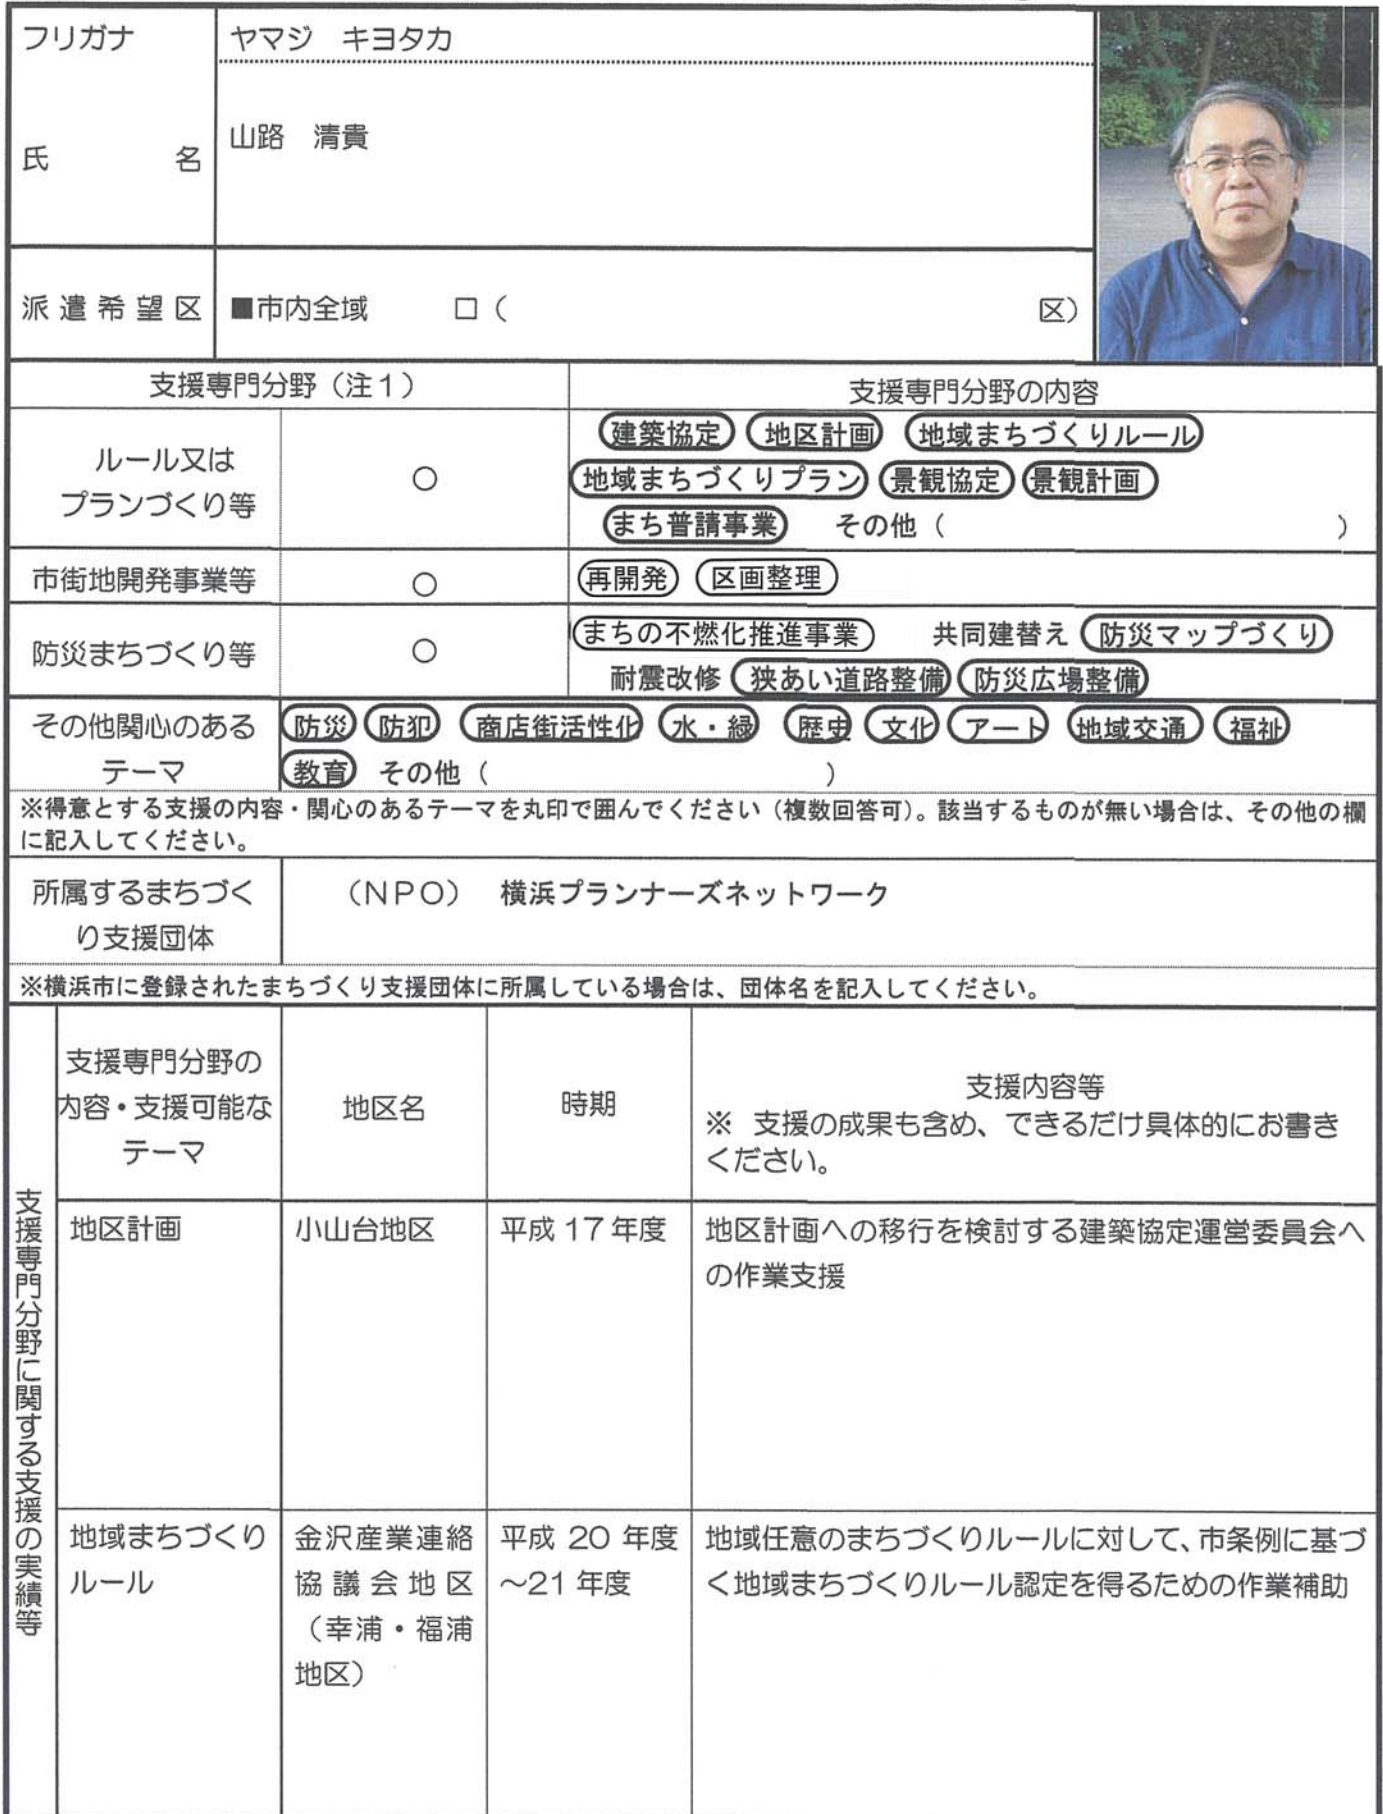 フリガナ
ヤマジ　キヨタカ
氏　　　　名
山路　清貴
派遣希望区
■市内全域　　　□（　　　　　　　　　　　　区）
支援専門分野（注１）
支援専門分野の内容
ルール又は
プランづくり等
○
建築協定　地区計画　地域まちづくりルール
地域まちづくりプラン　景観協定　景観計画
まち普請事業　その他（　　　　　　　　　　）
市街地開発事業等
○
再開発　区画整理
防災まちづくり等
○
まちの不燃化推進事業　共同建替え　防災マップづくり
耐震改修　狭あい道路整備　防災広場整備
その他関心のある
テーマ
防災　防犯　商店街活性化　水・緑　歴史　文化　アート　地域交通　福祉
教育　その他（　　　　　　　　）
※得意とする支援の内容・関心のあるテーマを丸印で囲んでください（複数回答可）。該当するものが無い場合は、その他の欄
に記入してください。
所属するまちづく
り支援団体
（ＮＰＯ）　横浜プランナーズネットワーク
※横浜市に登録されたまちづくり支援団体に所属している場合は、団体名を記入してください。
支援専門分野に関する支援の実績等
支援専門分野の
内容・支援可能な
テーマ
地区名
時期
支援内容等
※　支援の成果も含め、できるだけ具体的にお書き
ください。
地区計画
小山台地区
平成 17 年度
地区計画への移行を検討する建築協定運営委員会へ
の作業支援
地域まちづくり
ルール
金沢産業連絡
協議会地区
（幸浦・福浦
地区）
平成 20 年度
～21 年度
地域任意のまちづくりルールに対して、市条例に基づ
く地域まちづくりルール認定を得るための作業補助